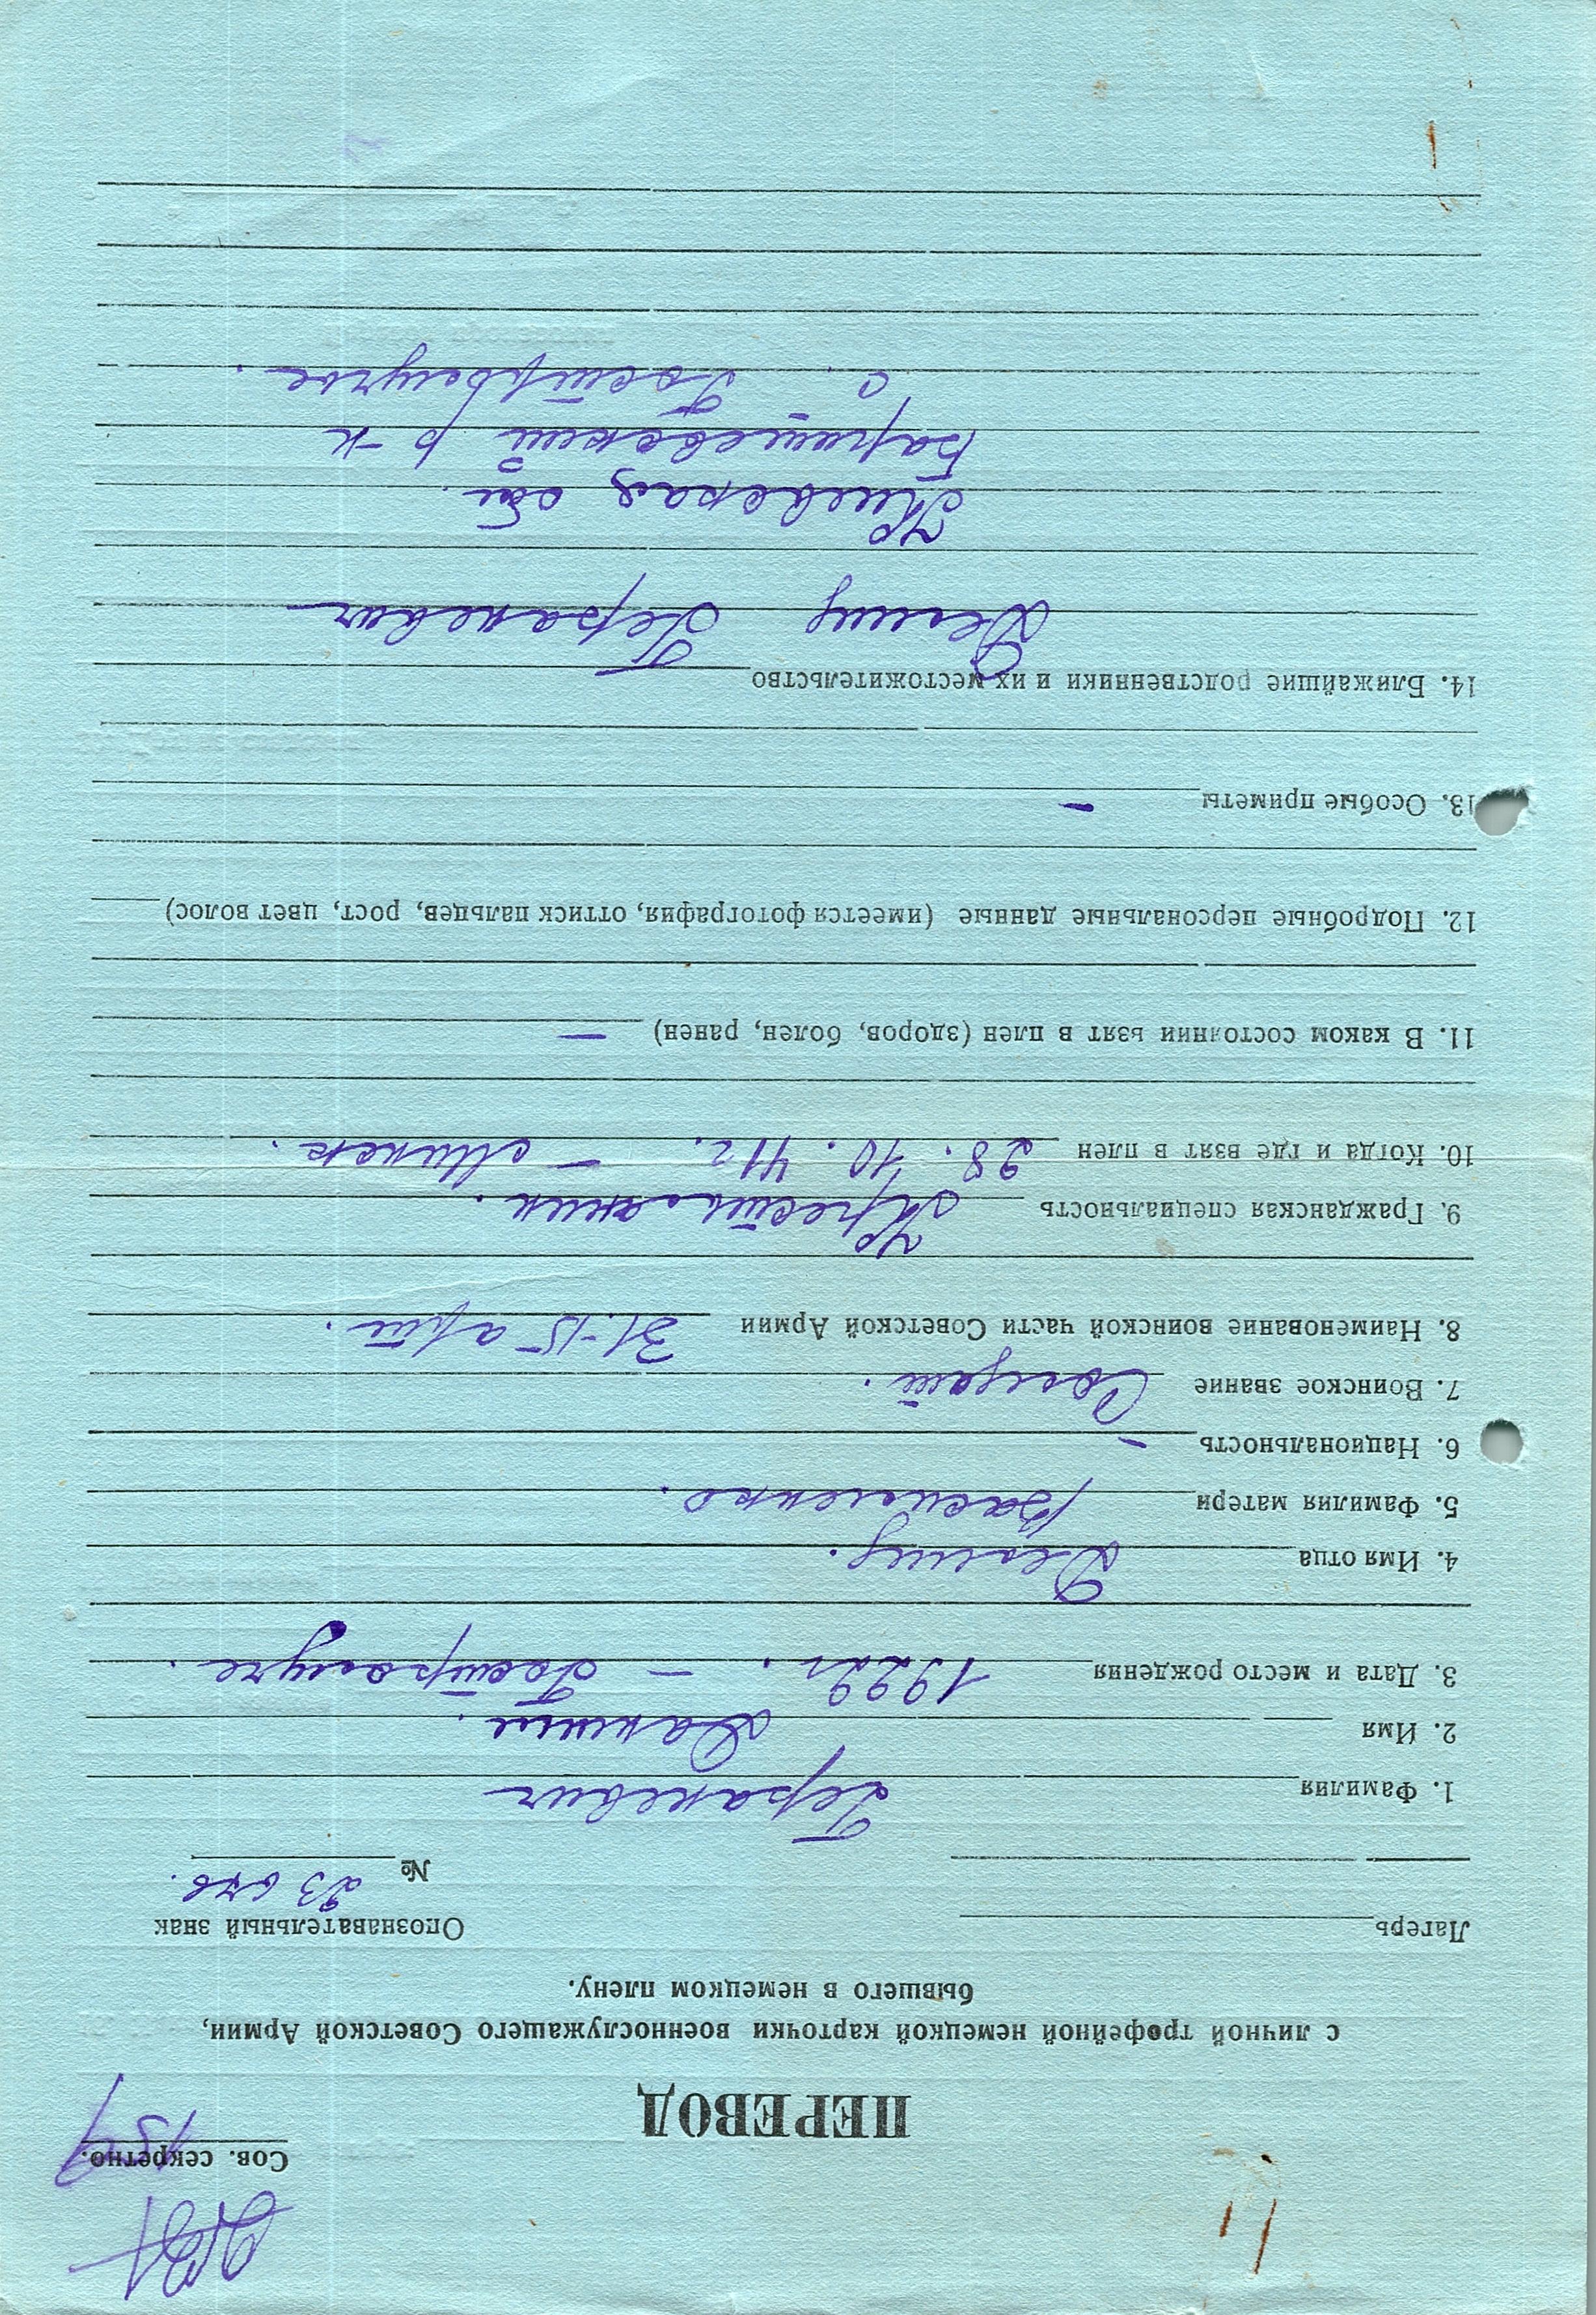 Сов. секретно.
ПЕРЕВОД
с личной трофейной немецкой карточки военнослужащего Советской Армии,
бывшего в немецком плену.
Лагерь
Опознавательный знак
№ 23
1. Фамилия Геракевич
2. Имя Данил.
3. Дата и место рождения 1922г. –
4. Имя отца
5. Фамилия матери Василенко.
6. Национальность –
7. Воинское звание Солдат.
8. Наименование воинской части Советской Армии арт.
9. Гражданская специальность Крестьянин.
10. Когда и где взят в плен 28.10.41г. – Минск.
11. В каком состоянии взят в плен (здоров, болен, ранен) –
12. Подробные персональные данные (имеется фотография, оттиск пальцев, рост, цвет волос)
13. Особые приметы –
14. Ближайшие родственники и их местожительство
Геракевич
Киевская обл.
Баришевский р-н
с.